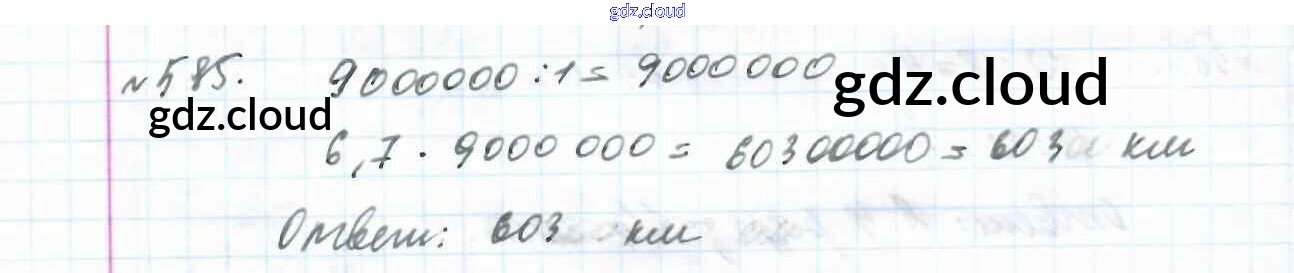 gdz.cloud
№585. 9000000 : 1 = 9000000
gdz.cloud
gdz.cloud
6,7 · 9000 000 = 60300000 = 603 км
Ответ: 603 км